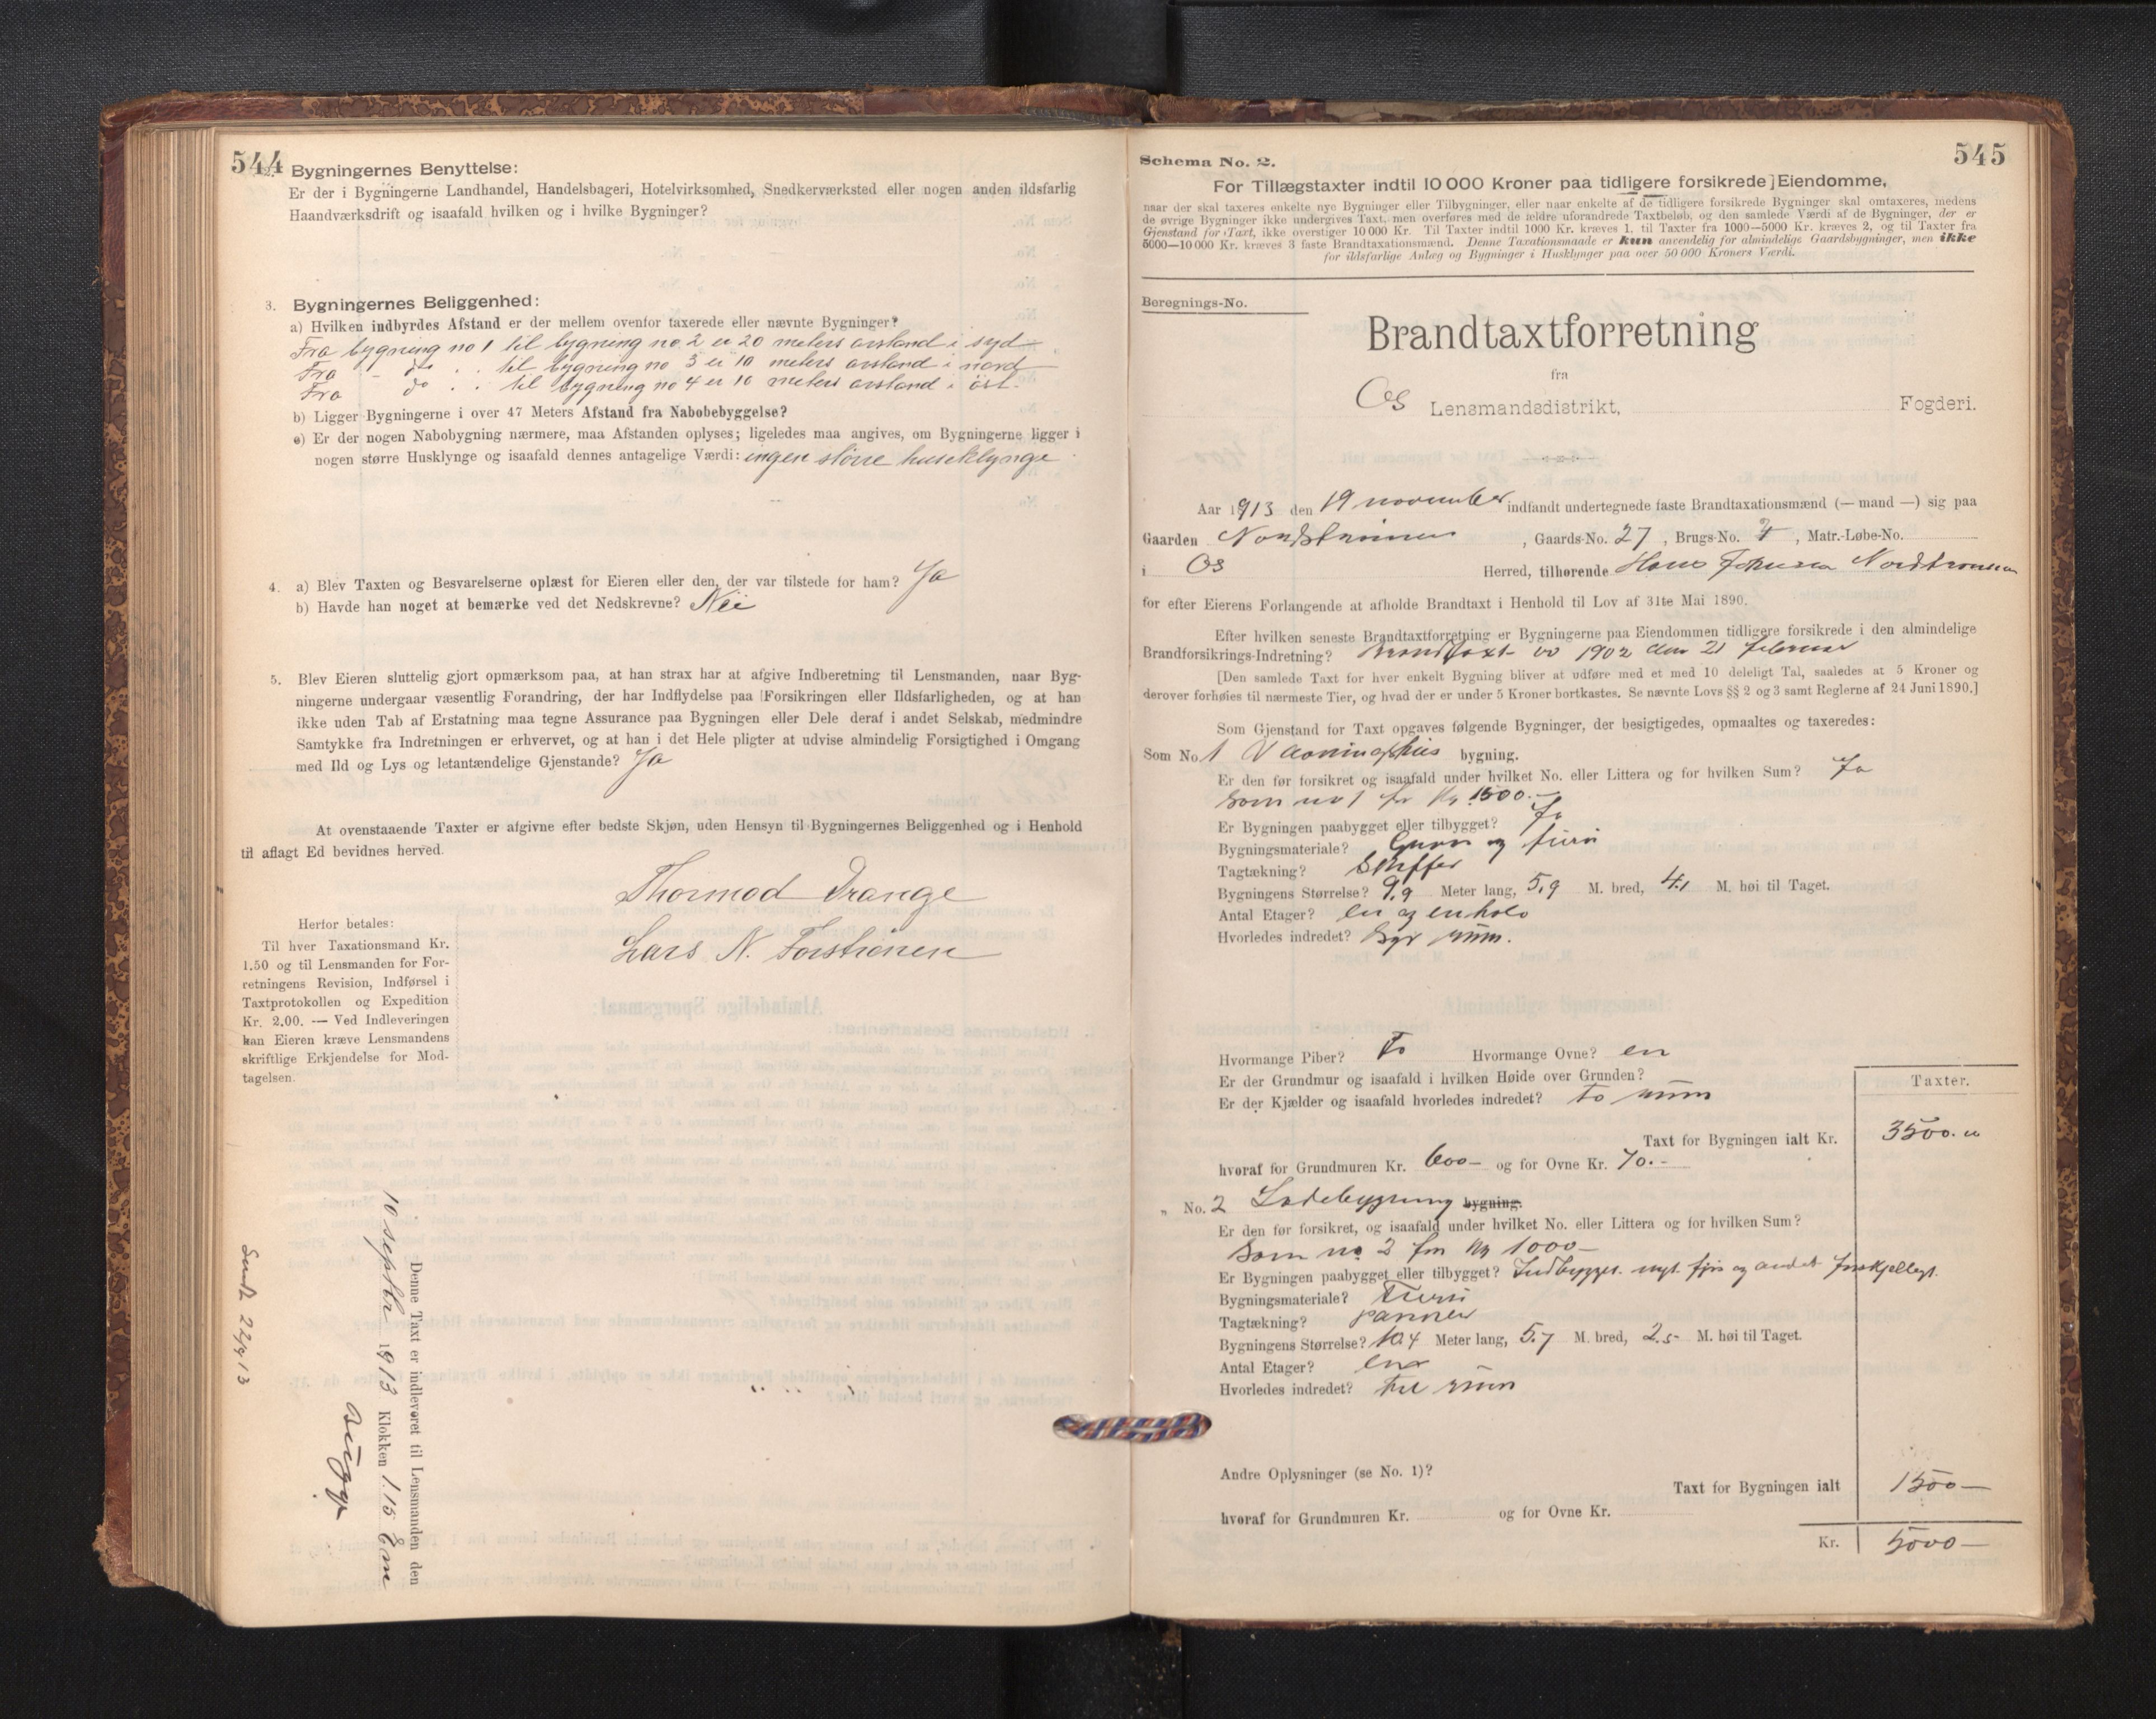 544
2. Bygningernes Benyttelse:
Er der i Bygningerne Landhandel, Handelsbageri, Hotelvirksomhed, Snedkerværksted eller nogen anden ildsfarlig
Haandværksdrift og isaafald hvilken og i hvilke Bygninger?
3. Bygningernes Beliggenhed:
a) Hvilken indbyrdes Afstand er der mellem ovenfor taxerede eller nævnte Bygninger?
Fra bygning no 1 til bygning no 2 er 20 meters avstand i syd
Fra - do . . til bygning no 3 er 10 meters avstand i nord
Fra do . . til bygning no 4 er 10 meters avstand i öst.
b) Ligger Bygningerne i over 47 Meters Afstand fra Nabobebyggelse?
c) Er der nogen Nabobygning nærmere, maa Afstanden oplyses; ligeledes maa angives, om Bygningerne ligger i
nogen større Husklynge og isaafald dennes antagelige Værdi: ingen større huseklynge
4. a) Blev Taxten og Besvarelserne oplæst for Eieren eller den, der var tilstede for ham? Ja
b) Havde han noget at bemærke ved det Nedskrevne? Nei
5. Blev Eieren sluttelig gjort opmærksom paa, at han strax har at afgive Indberetning til Lensmanden, naar Byg-
ningerne undergaar væsentlig Forandring, der har Indflydelse paa Forsikringen eller Ildsfarligheden, og at han
ikke uden Tab af Erstatning maa tegne Assurance paa Bygningen eller Dele deraf i andet Selskab, medmindre
Samtykke fra Indretningen er erhvervet, og at han i det Hele pligter at udvise almindelig Forsigtighed i Omgang
med Ild og Lys og letantændelige Gjenstande? Ja
At ovenstaaende Taxter er afgivne efter bedste Skjøn, uden Hensyn til Bygningernes Beliggenhed og i Henhold
til aflagt Ed bevidnes herved.
Thormod Drange
Lars N. Forströnen
Herfor betales:
Til hver Taxationsmand Kr.
1.50 og til Lensmanden for For-
retningens Revision, Indførsel i
Taxtprotokollen og Expedition
Kr. 2.00. — Ved Indleveringen
kan Eieren kræve Lensmandens
skriftlige Erkjendelse for Mod-
tagelsen.
Denne Taxt er indleveret til Lensmanden den
10 septbr 1913 Klokken 1.15 Em
Sendt 22/9 13
545
Schema No. 2.
For Tillægstaxter indtil 10 000 Kroner paa tidligere forsikrede Eiendomme,
naar der skal taxeres enkelte nye Bygninger eller Tilbygninger, eller naar enkelte af de tidligere forsikrede Bygninger skal omtaxeres, medens
de øvrige Bygninger ikke undergives Taxt, men overføres med de ældre uforandrede Taxtbeløb, og den samlede Værdi af de Bygninger, der er
Gjenstand for Taxt, ikke overstiger 10 000 Kr. Til Taxter indtil 1000 Kr. kræves 1, til Taxter fra 1000—5000 Kr. kræves 2, og til Taxter fra
5000—10 000 Kr. kræves 3 faste Brandtaxationsmænd. Denne Taxationsmaade er kun anvendelig for almindelige Gaardsbygninger, men ikke
for ildsfarlige Anlæg og Bygninger i Husklynger paa over 50 000 Kroners Værdi.
Beregnings-No.
Brandtaxtforretning
fra
Os Lensmandsdistrikt, Fogderi.
Aar 1913 den 19 november indfandt undertegnede faste Brandtaxationsmænd (— mand —) sig paa
Gaarden Nordströnen , Gaards-No. 27 , Brugs-No. 7 , Matr.-Løbe-No.
i Os Herred, tilhørende Hans Johnsen Nordströnen
for efter Eierens Forlangende at afholde Brandtaxt i Henhold til Lov af 31te Mai 1890.
Efter hvilken seneste Brandtaxtforretning er Bygningerne paa Eiendommen tidligere forsikrede i den almindelige
Brandforsikrings-Indretning? Brandtaxt av 1902 den 21 februar
[Den samlede Taxt for hver enkelt Bygning bliver at udføre med et med 10 deleligt Tal, saaledes at 5 Kroner og
derover forhøies til nærmeste Tier, og hvad der er under 5 Kroner bortkastes. Se nævnte Lovs §§ 2 og 3 samt Reglerne af 24 Juni 1890.]
Som Gjenstand for Taxt opgaves følgende Bygninger, der besigtigedes, opmaaltes og taxeredes:
Som No 1 Vaaningshus bygning.
Er den før forsikret og isaafald under hvilket No. eller Littera og for hvilken Sum? Ja
Som no 1 for Kr 1500.—
Er Bygningen paabygget eller tilbygget? Ja
Bygningsmateriale? og furu
Tagtækning? Skiffer
Bygningens Størrelse? 9,9 Meter lang, 5,9 M. bred, 4,1 M. høi til Taget.
Antal Etager? en og en halv
Hvorledes indredet? Syv rum.
Hvormange Piber? To Hvormange Ovne? en
Er der Grundmur og isaafald i hvilken Høide over Grunden?
Er der Kjælder og isaafald hvorledes indredet? to rum
Taxter.
Taxt for Bygningen ialt Kr. 3500.
hvoraf for Grundmuren Kr. 600— og for Ovne Kr. 70.—
„ No. 2 Ladebygning bygning.
Er den før forsikret, og isaafald under hvilket No. eller Littera og for hvilken Sum?
Som no 2 for Kr 1000—
Er Bygningen paabygget eller tilbygget? Indbygget nyt fjös og andet forskjelligt.
Bygningsmateriale? Furu
Tagtækning? panner
Bygningens Størrelse? 10,4 Meter lang, 5,7 M. bred, 2,5 M. høi til Taget.
Antal Etager? en
Hvorledes indredet? tre rum
Andre Oplysninger (se No. 1)?
Taxt for Bygningen ialt 1500—
hvoraf for Grundmuren Kr. og for Ovne Kr.
Kr. 5000—